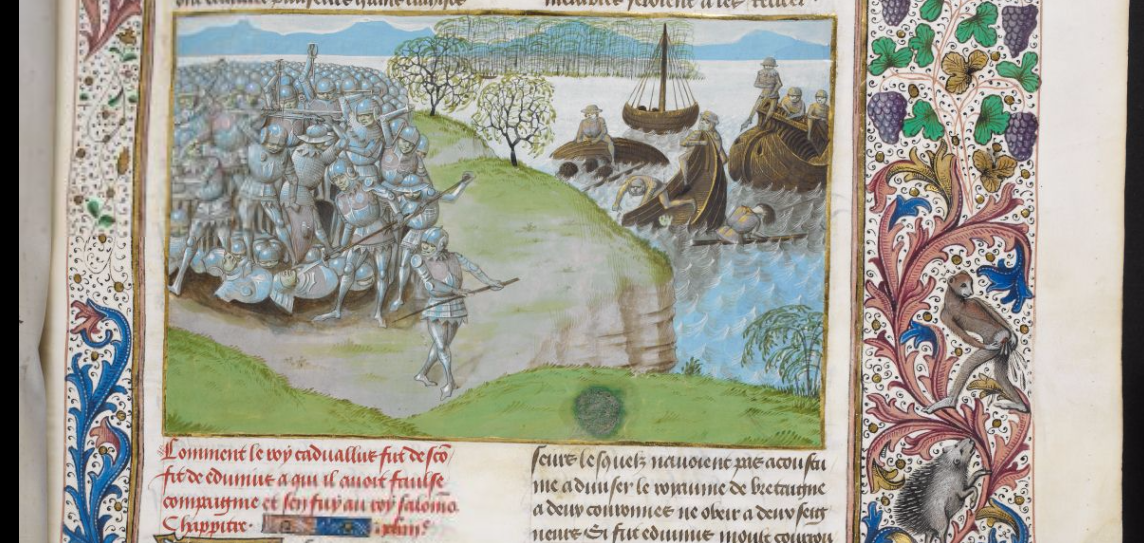 Comment le roy cadvallus fut desco
fit de edvinus a qui il avoit faulse
compaignie et sen fuy au roy salomō
Chappitre
seurs lesquelz navoient pas acoustu
me a diviser le royaume de bretaigne
a deux couronnes ne obeir a deux seig
neurs Si fut edvinus moult courrou